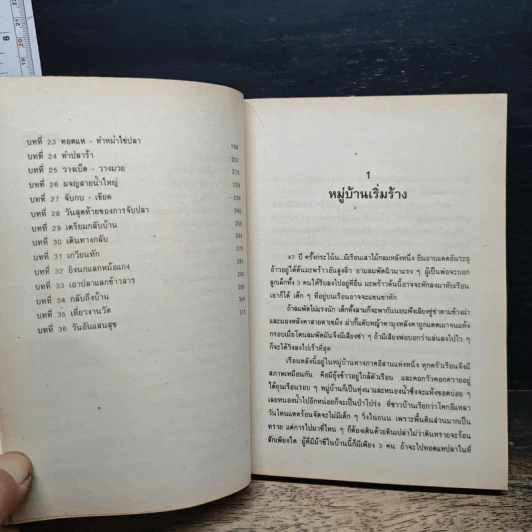 บทที่ 23 ทอดแห - ทำหม่ำไข่ปลา
บทที่ 24 ทำปลาร้า
บทที่ 25 วางเบ็ด - วางมวย 215
บทที่ 26 ผจญสายน้ำใหญ่
บทที่ 27 จับกบ - เขียด
บทที่ 28 วันสุดท้ายของการจับปลา
บทที่ 29 เตรียมกลับบ้าน
บทที่ 30 เดินทางกลับ
บทที่ 31 เกวียนหัก
บทที่ 32 ยิงนกแลกหม้อแกง
บทที่ 33 เอาปลาแลกข้าวสาร
บทที่ 34 กลับถึงบ้าน
บทที่ 35 เที่ยวงานวัด
บทที่ 36 วันอันแสนสุข
1
หมู่บ้านเริ่มร้าง
47 ปี ครั้งกระโน้น...มีเรือนเสาไม้กลมหลังหนึ่ง ยืนอาบแดดอันระอุ
อ้าวอยู่ใต้ต้นมะพร้าวอันสูงลิ่ว ยามลมพัดฉิวมาแรง ๆ ผู้เป็นพ่อจะบอก
ลูกเล็กทั้ง 3 คนให้รีบลงไปอยู่ที่อื่น มะพร้าวต้นนี้อาจจะหักลงมาทับเรือน
เอาก็ได้ เด็ก ๆ ที่อยู่บนเรือนอาจจะแขนขาหัก
ถ้าลมพัดไม่แรงนัก เด็กทั้งสามก็จะพากันนอนฟังเสียงซู่ซ่าตามข้างฝา
และมองหลังคาลายตาเข็ง ฝากั้นด้วยหญ้าคามุงหลังคาถูกแดดเผาจนแห้ง
กรอบเมื่อโดนลมพัดมันจึงมีเสียงดังซ่า ๆ ถ้ามีเสียงพ่อบอกว่าแล่นลงไปไว ๆ
ก็จะได้วิ่งลงไปเร็วที่สุด
เรือนหลังนี้อยู่ในหมู่บ้านทางภาคอีสานแห่งหนึ่ง ทุกครัวเรือนจึงมี
สภาพเหมือนกัน คือมียุ้งข้าวอยู่ใกล้ตัวเรือน และคอกวัวคอกควายอยู่
ใต้ถุนเรือนรอบ ๆ หมู่บ้านก็เป็นทุ่งนาและหนองน้ำซึ่งจะแห้งขอดบ่อย ๆ
เลยหนองน้ำไปอีกหน่อยก็จะเป็นป่าโปร่ง ที่ชาวบ้านเรียกว่าโคกอีแหลว
วันไหนแดดร้อนจัดจะไม่มีเด็ก ๆ วิ่งในถนน เพราะพื้นดินส่วนมากเป็น
ทราย แต่การไปมาที่ไหน ๆ ก็ต้องเดินด้วยตีนเปล่าไม่ว่าดินทรายจะร้อน
สักเพียงใด ผู้ที่มีม้าขี่ในบ้านนี้ก็มีเพียง 3 คน ถ้าจะไปทอดแหปลาในที่